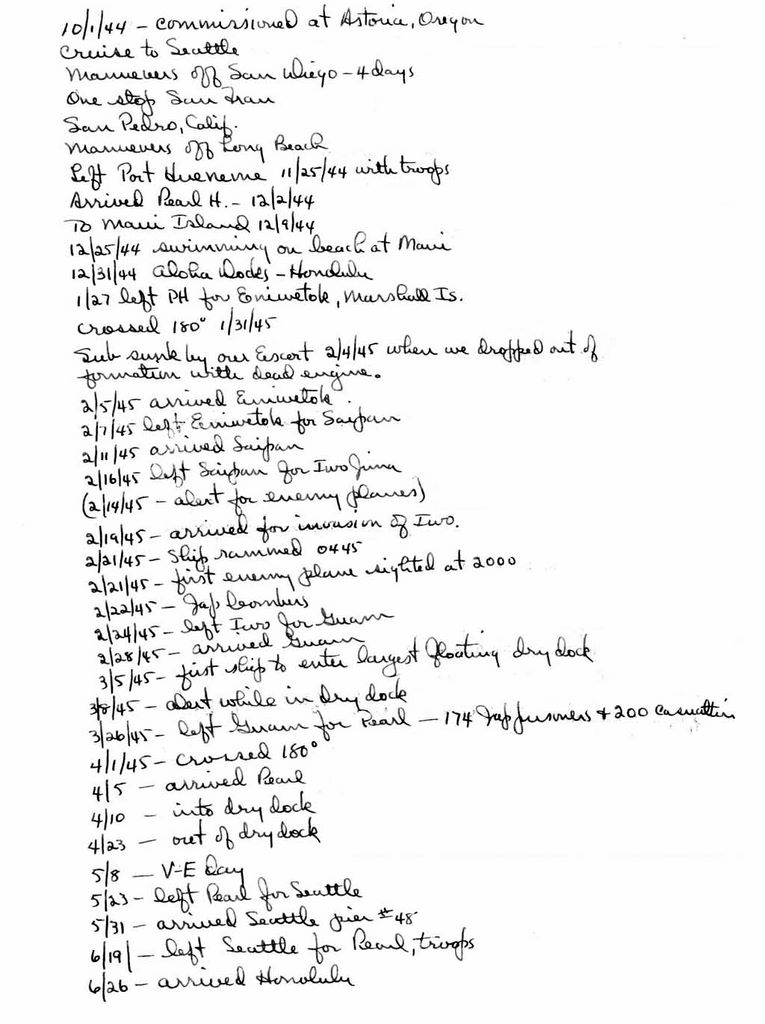 10/1/44 - commissioned at Astoria, Oregon
Cruise to Seattle
Manuevers off San Diego - 4 days
One stop San Fran
San Pedro, Calif.
Manuevers off Long Beach
Left Port Hueneme 11/25/44 with troops
Arrived Pearl H. - 12/2/44
To Maui Island 12/9/44
12/25/44 swimming on beach at Maui
12/31/44 Aloha Docks - Honolulu
1/27 left PH for Eniwetok, Marshall Is.
crossed 180° 1/31/45
Sub sunk by our Escort 2/4/45 when we dropped out of
formation with dead engine.
2/5/45 arrived Eniwetok.
2/7/45 left Eniwetok for Saipan
2/11/45 arrived Saipan
2/16/45 left Saipan for Iwo Jima
(2/14/45 - alert for enemy planes)
2/19/45 - arrived for invasion of Iwo.
2/21/45 - Ship rammed 0445
2/21/45 - first enemy plane sighted at 2000
2/22/45 - Jap bombers
2/24/45 - left Iwo for Guam
2/28/45 - arrived Guam
3/5/45 - first ship to enter largest floating dry dock
3/8/45 - alert while in dry dock
3/26/45 - left Guam for Pearl - 174 Jap prisoners + 200 casualties
4/1/45 - crossed 180°
4/5 - arrived Pearl
4/10 - into dry dock
4/23 - out of dry dock
5/8 - V-E Day
5/23 - left Pearl for Seattle
5/31 - arrived Seattle pier #48
6/19 - left Seattle for Pearl, troops
6/26 - arrived Honolulu